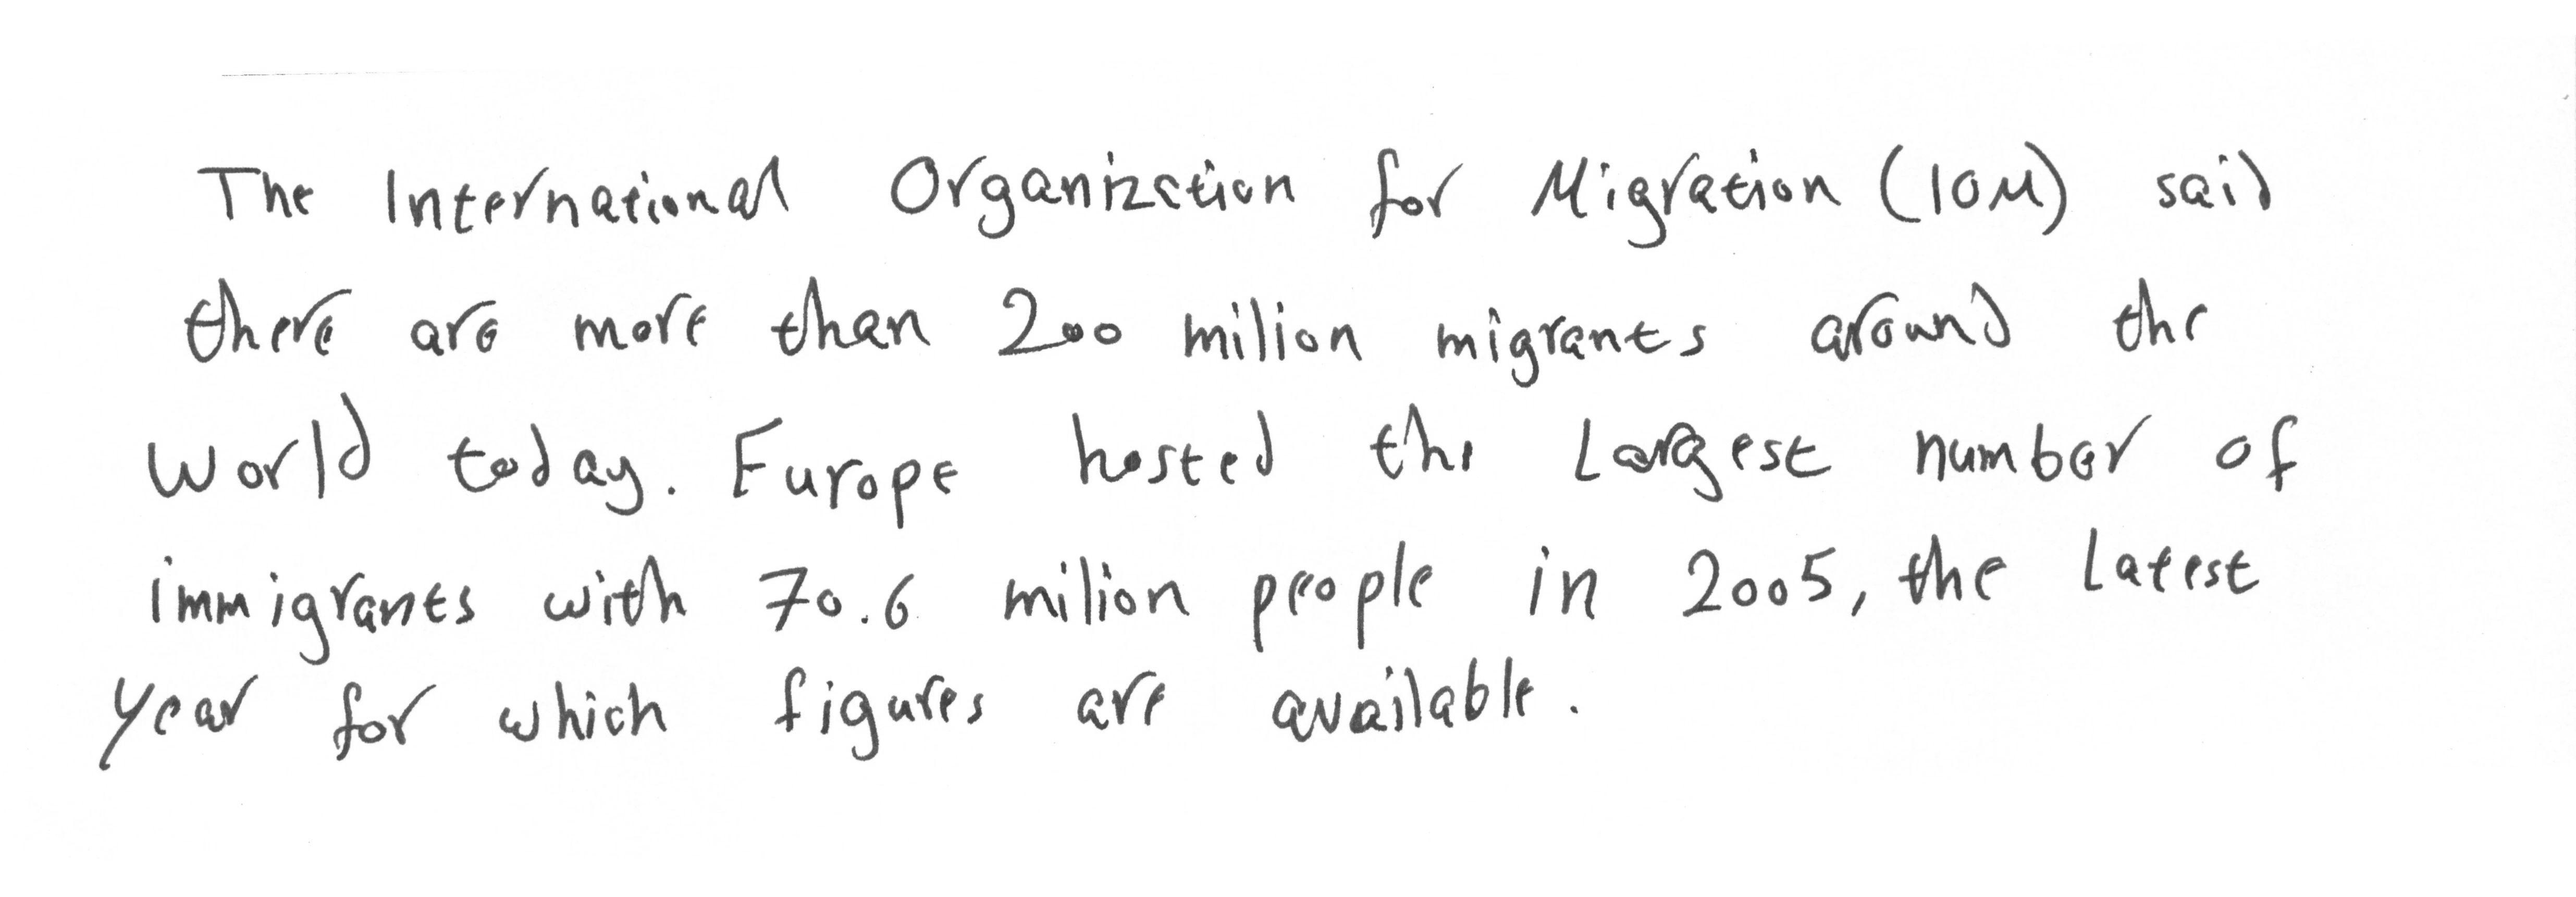 The International Organization for Migration (IOM) said
there are more than 200 milion migrants around the
world today. Europe hosted the Largest number of
immigrants with 70.6 milion people in 2005, the Latest
year for which figures are available.